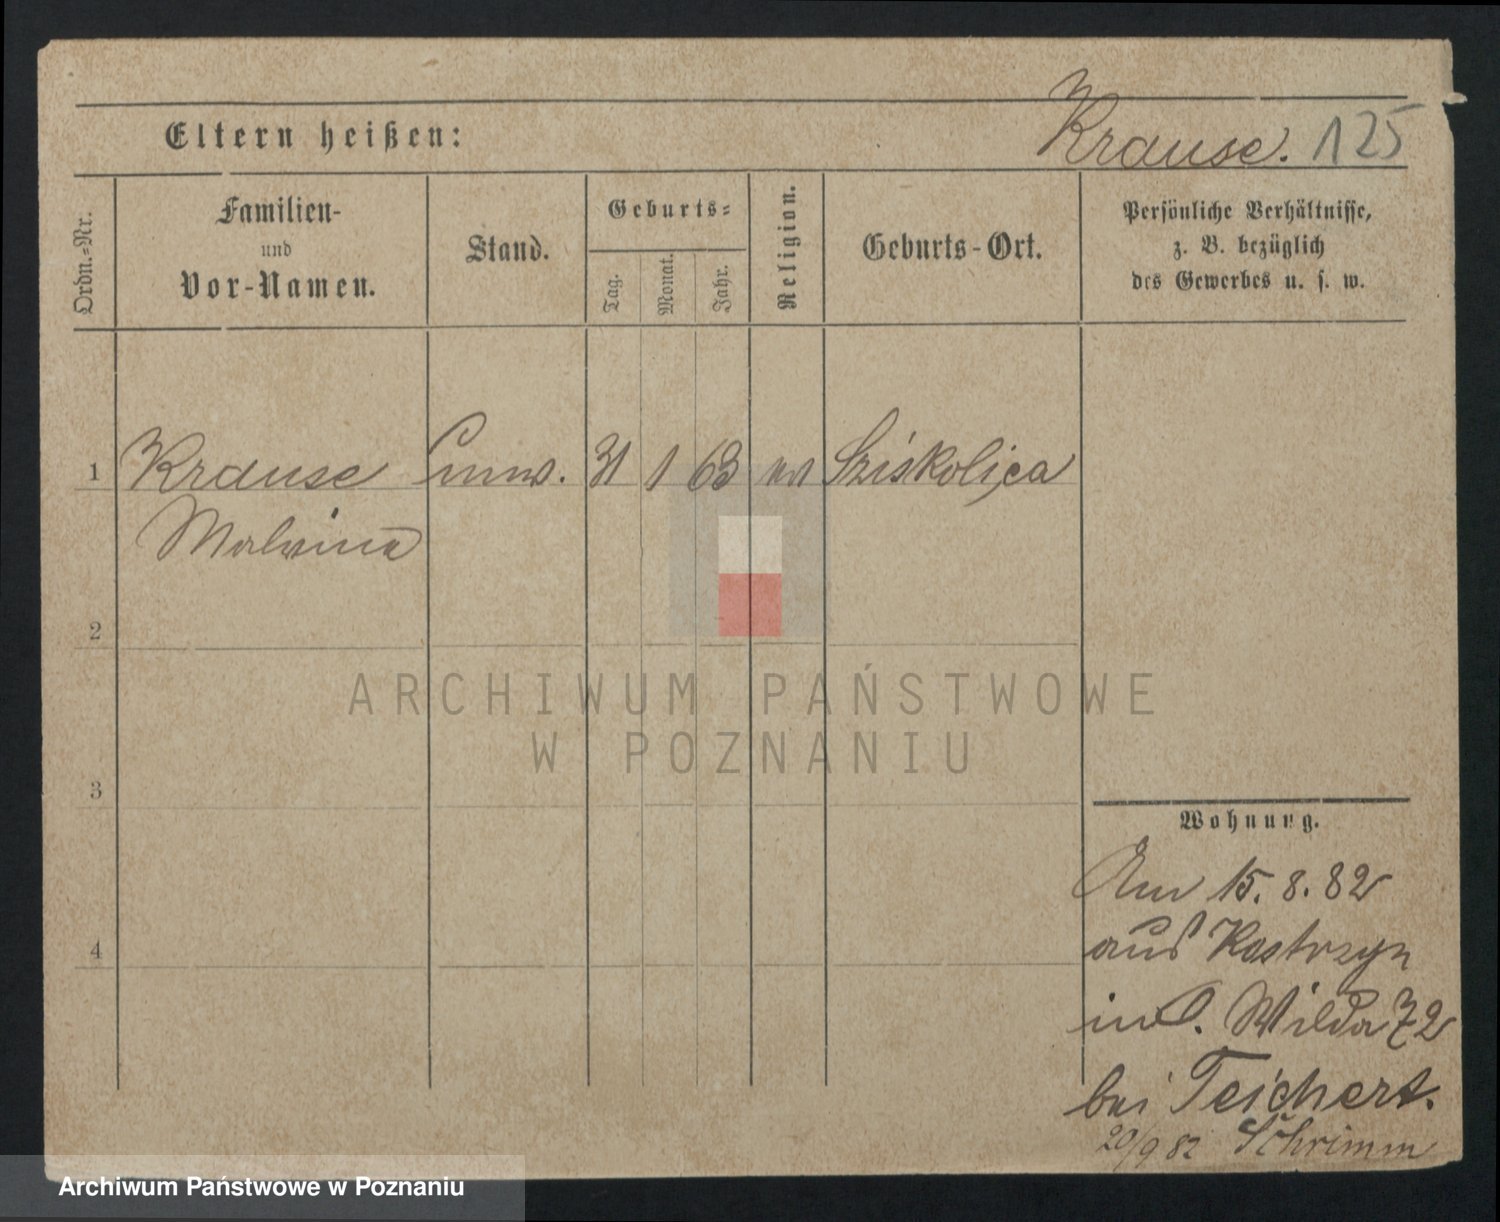 Eltern heißen:
Krause. 125
Ordn.-Nr.
Familien-
und
Vor-Namen.
Stand.
Geburts-
Tag.
Monat.
Jahr.
Religion.
Geburts-Ort.
Persönliche Verhältnisse,
z. B. bezüglich
des Gewerbes u. s. w.
1 Krause 31 1 63 ev
Malvina
2
3
4
Wohnung.
Am 15. 8. 82
aus Kostrzyn
in O. Wilda 72
bei Teichert.
20/9 82 Schrimm
ARCHIWUM PAŃSTWOWE
W POZNANIU
Archiwum Państwowe w Poznaniu